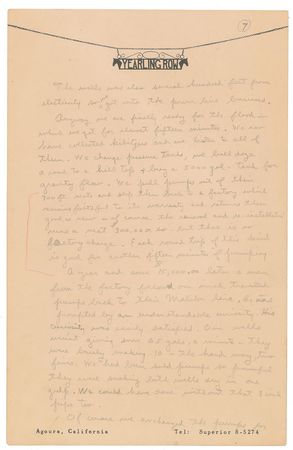 7
YEARLING ROW
The wells was also several hundred feet from
electricity so get into the power line business.
Anyway we are finally ready for the flood in
which we get for almost fifteen minutes. We now
have collected
them. We change pressure tanks, we bull doze
a road to a hill top & bury a 5000 gal. tank for
gravity flow. We pull pumps out of their
300 ft. nets and ship them back to a factory which
remains faithful to its warranty and returns them
good as new - of course the removal and re-installation
runs a neat 300.00 or so but there is no
factory charge. Each round trip of this kind
is good for another fifteen minutes of pumping.
A year and some 15,000.00 later a man
from the factory followed our much traveled
pumps back to their Malibu lair, he was
prompted by an understandable curiosity. His
curiosity was easily satisfied. Our wells
weren't giving over 25 gals. a minute - They
were barely making 10 - the hard way two
fours. We had been sold pumps so powerful
they were sucking both wells dry in one
gulp. We could have done without that 3 inch
pipe too.
Of course we exchanged the pumps for
Agoura, California
Tel: Superior 8-5274